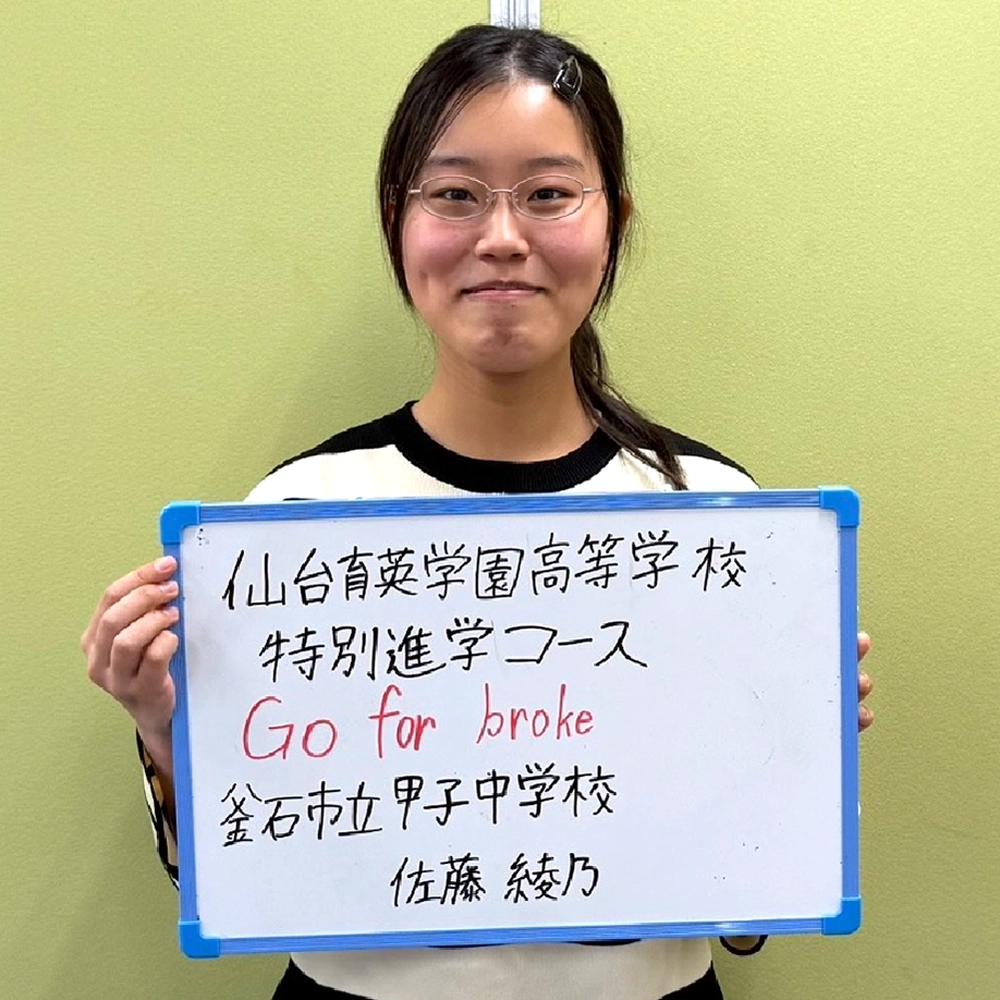 仙台育英学園高等学校
特別進学コース
Go for broke
釜石市立甲子中学校
佐藤 綾乃